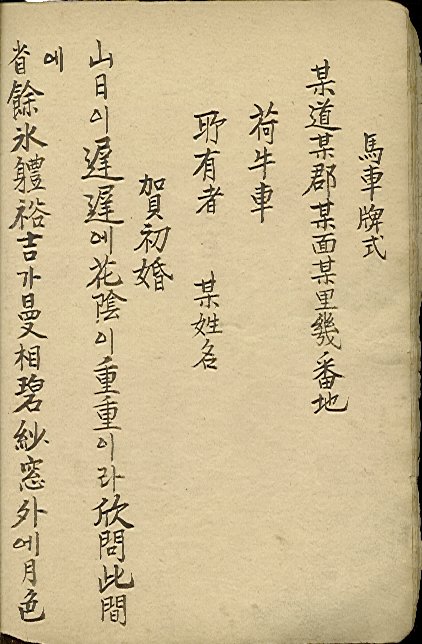 馬車牌式
某道某郡某面某里幾番地
荷牛車
所有者 某姓名
賀初婚
山日이遲遲에花陰이重重이라欣問此間
에
省餘氷軆裕吉가曼相碧紗窓外에月色